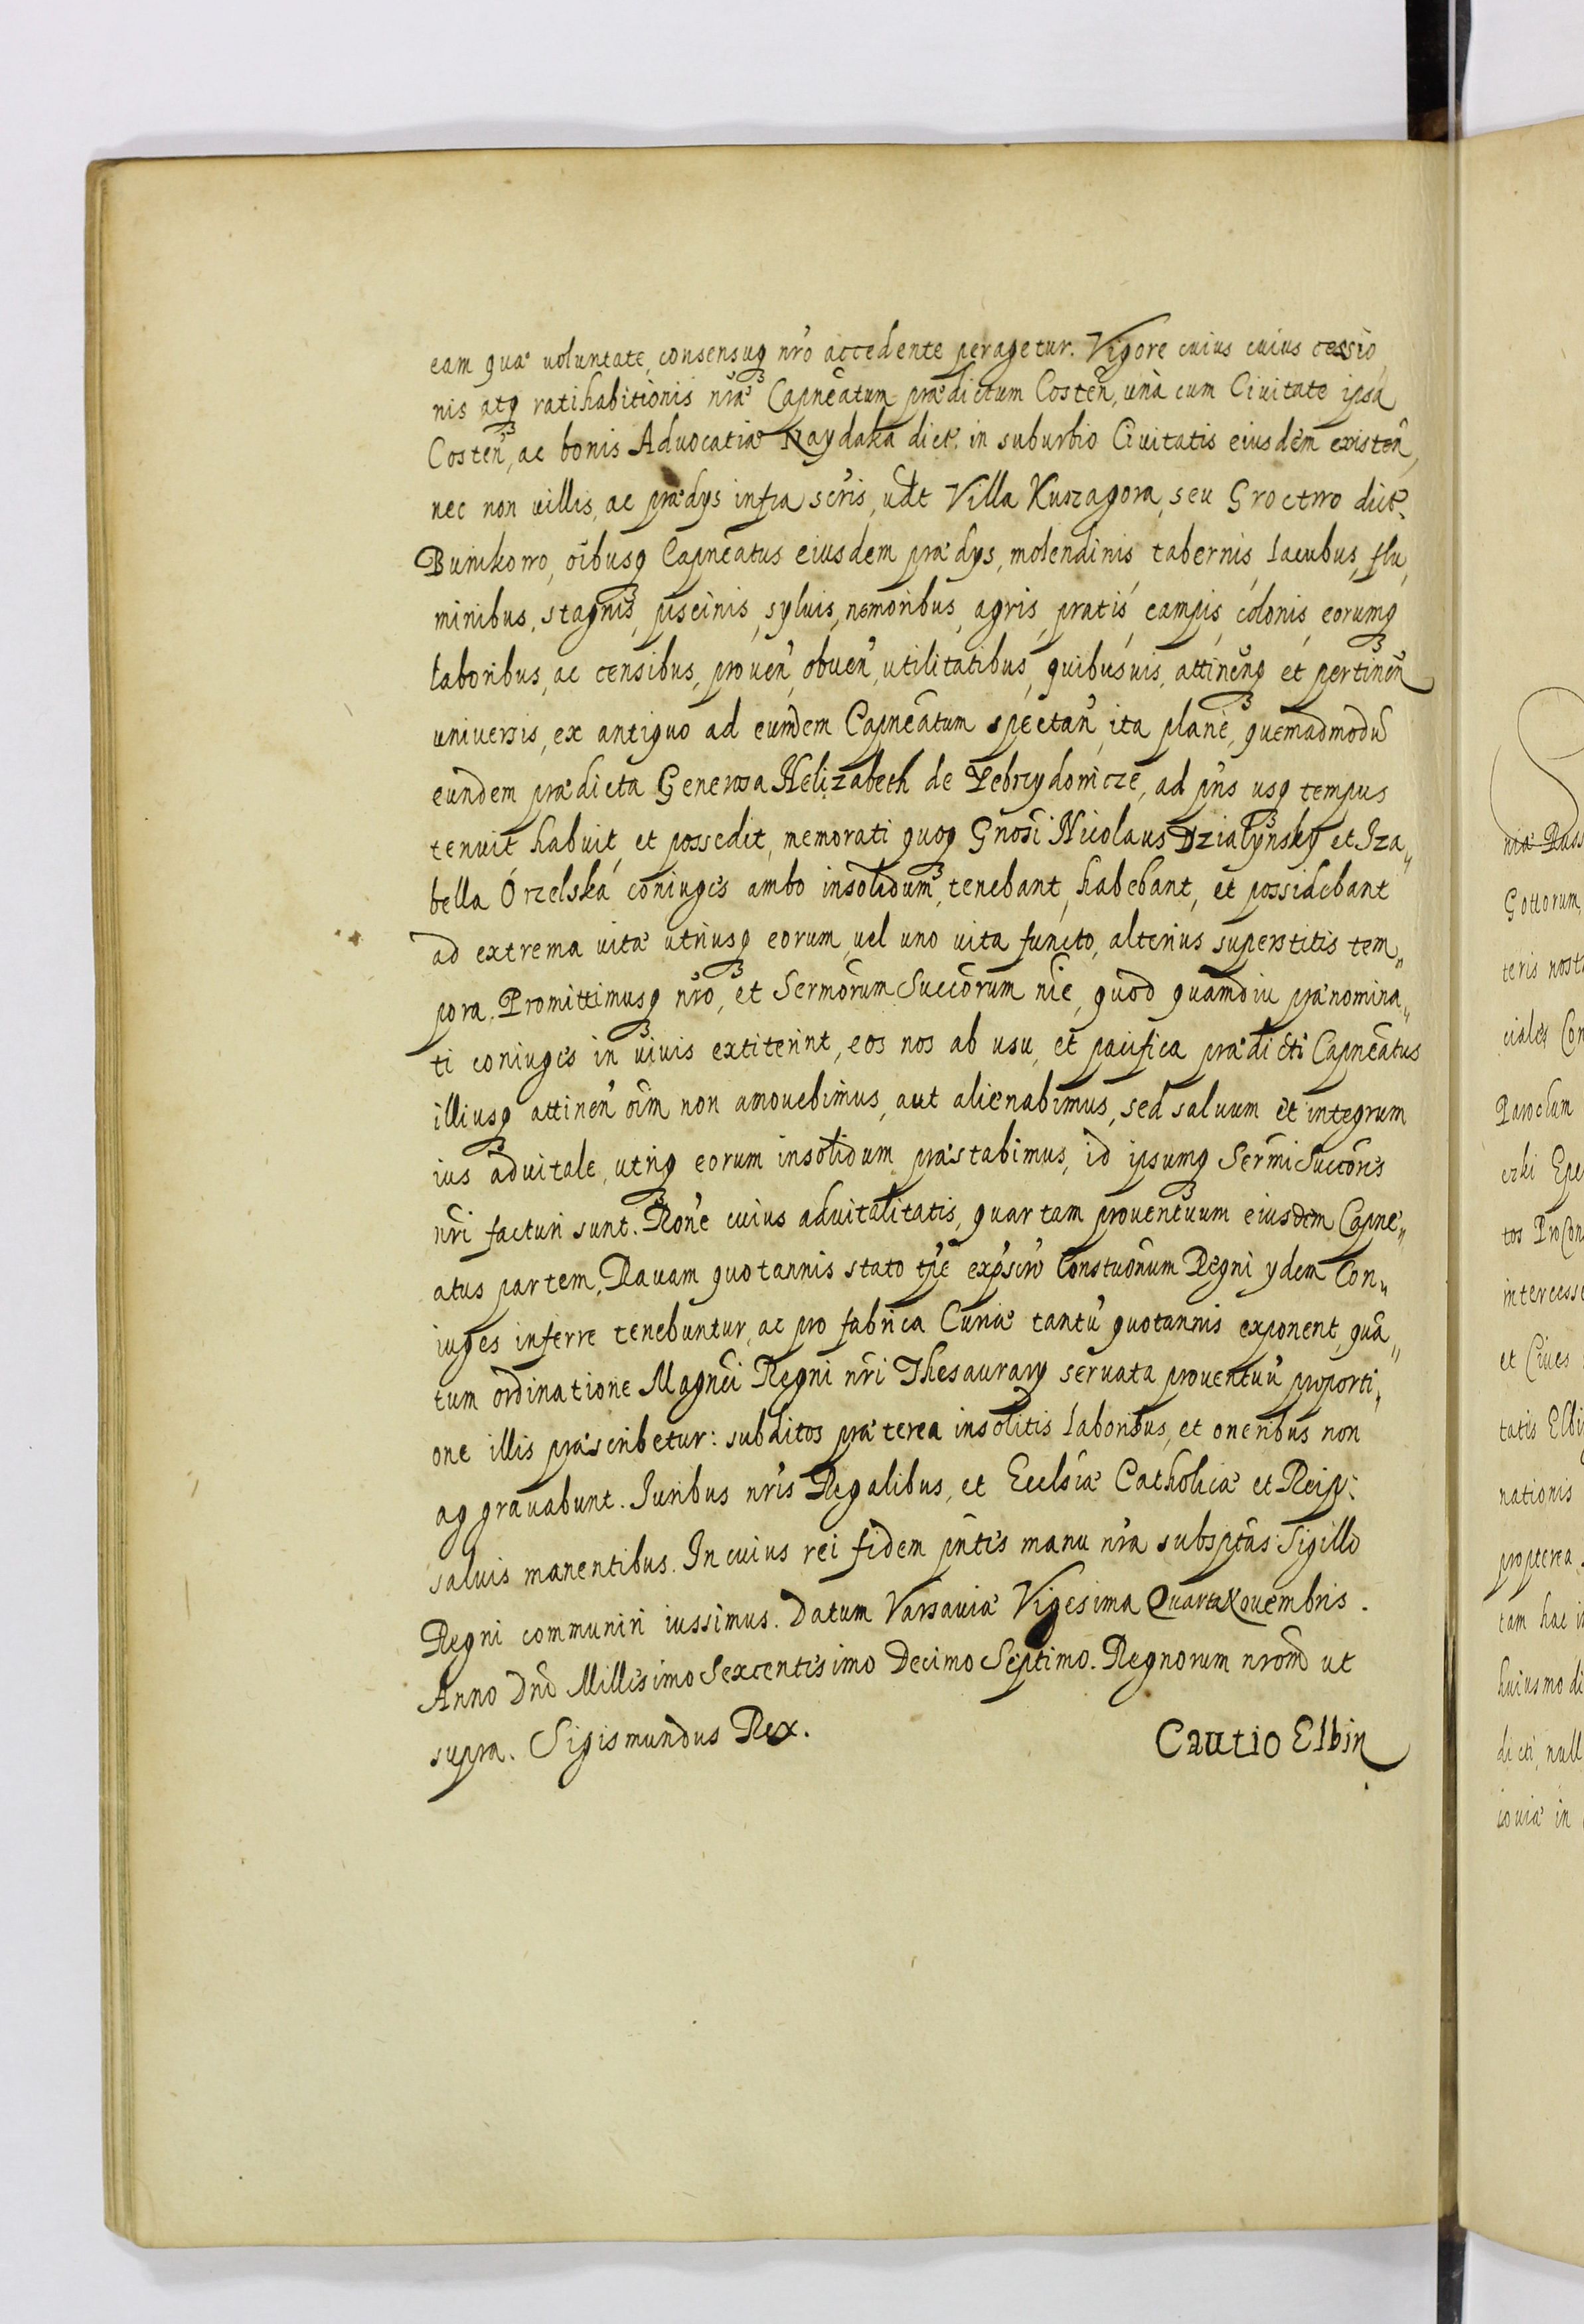 eam quæ voluntate, consensuq nrō accedente peragetur. Vigore cuius cuius cessio,
nis atq ratihabitionis nræ Capneatum prædictum Costen̄, unà cum Ciuitate ipsa
Costen̄, ac bonis Aduocatiæ Naydaka dict. in suburbio Ciuitatis eiusdem existen̄,
nec non uillis, ac prædys infra scr̄is, udt Villa Kuszagora, seu Groctwo dict.
Buinkowo, oībusq Capneatus eiusdem prædys, molendinis tabernis, lacubus, flu,
minibus, stagnis, piscinis, syluis, nemoribus, agris, pratis, campis, colonis, eorumq
laboribus, ac censibus, prouen̄, obuen̄, utilitatibus, quibusuis, attinen̄q et pertinen̄
uniuersis, ex antiquo ad eundem Capneatum spectan̄, ita planè, quemadmodū
eundem prædicta Generosa Helizabeth de Pebrzydowicze, ad pn̄s usq tempus
tenuit habuit, et possedit, memorati quoq Gnosi Nicolaus Dzialynsky et Iza„
bella Orzelska coniuges ambo insolidum, tenebant, habebant, et possidebant
ad extrema uitæ utriusq eorum, uel uno uita functo, alterius superstitis tem„
pora. Promittimusq nrō, et Sermōrum Succōrum nīe, quod quamdiu prænomina„
ti coniuges in uiuis extiterint, eos nos ab usu, et pacifica prædicti Capneatus
illiusq attinen̄ oīm non amouebimus, aut alienabimus, sed saluum et integrum
ius aduitale, utriq eorum insolidum præstabimus, id ipsumq Sermī Succōres
nr̄i facturi sunt. Rōne cuius aduitalitatis, quartam prouentuum eiusdem Capne„
atus partem, Rauam quotannis stato tp̄e ex p̄scrō Constuōnum Regni ydem Con„
iuges inferre tenebuntur, ac pro fabrica Curiæ tantū quotannis exponent, quā„
tum ordinatione Magn̄ci Regni nr̄i Thesaurary seruata prouentuū proporti,
one illis præscribetur: subditos præterea insolitis laboribus, et oneribus non
aggrauabunt. Iuribus nr̄is Regalibus, et Ecclsiæ Catholicæ et Reip:
saluis manentibus. In cuius rei fidem pn̄tes manu nr̄a subsptas Sigillo
Regni communiri iussimus. Datum Varsauiæ Vigesima Quarta Nouembris.
Anno Dn̄i Millesimo Sexcentesimo Decimo Septimo. Regnorum nrōm ut
supra. Sigismundus Rex.
Cautio Elbin
niæ Russ
Gottorum,
teris nost
ciales Con
Paroclum
czki Epe
tos ProCon
intercesse
et Ciues
tatis Elbi
nationis
propterea
tam hac i
huiusmodi
dicti, null
couiæ in